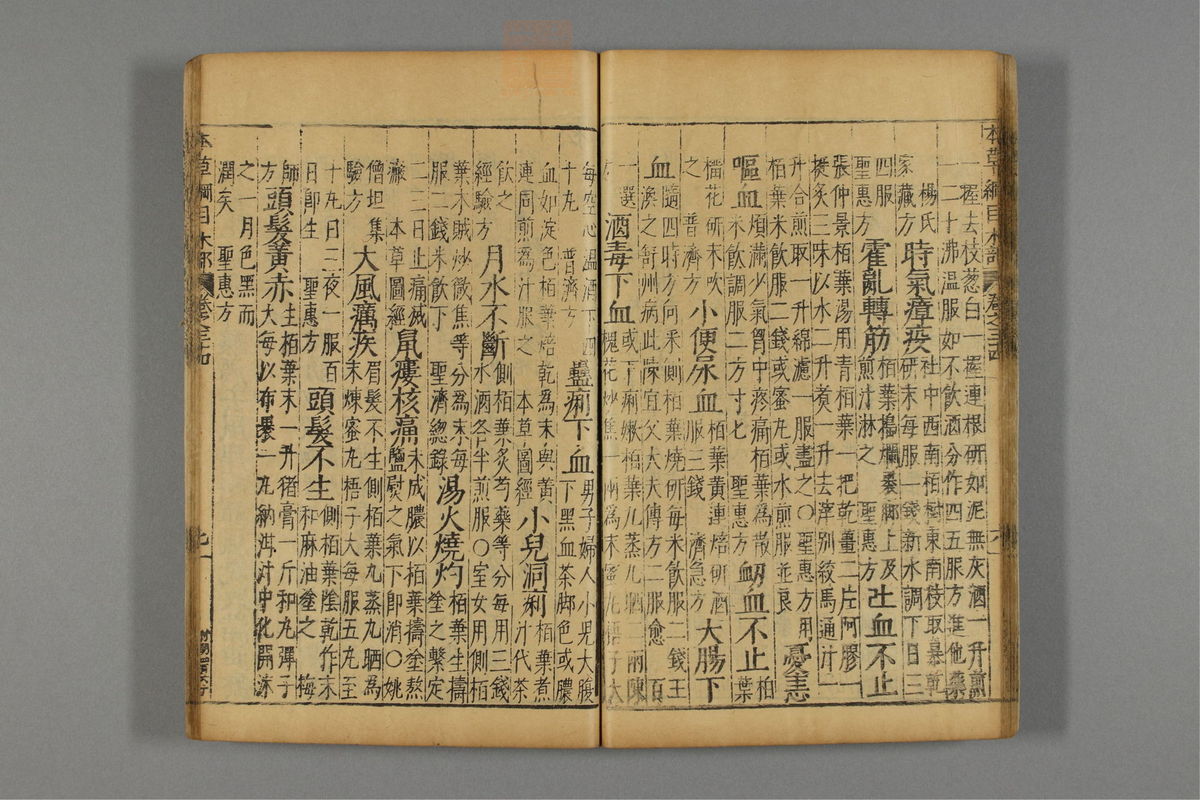 本草綱目木部 卷之三十四 六
一握去枝葱白一握連根研如泥無灰酒一升煎
一二十沸溫服如不飲酒分作四五服方進他藥
楊氏
家藏方 時氣瘴疾 社中西南栢樹東南枝取暴乾
研末每服一錢新水調下日三
四服
聖惠方 霍亂轉筋 栢葉搗爛裹脚上及
煎汁淋之 聖惠方 吐血不止
張仲景栢葉湯用青栢葉一把乾薑二片阿膠一
挺炙三味以水二升煮一升去滓別絞馬通汁一
升合煎取一升綿濾一服盡之○聖惠方用
栢葉米飲服二錢或蜜丸或水煎服並良 憂恚
嘔血 煩滿少氣胷中疼痛栢葉為散
米飲調服二方寸匕 聖惠方 衂血不止 栢
葉
榴花研末吹
之 普濟方 小便尿血 栢葉黃連焙研酒
服三錢 濟急方 大腸下
血 隨四時方向采側栢葉燒研每米飲服二錢王
渙之舒州病此陳宜父大夫傳方二服愈 百
一選 酒毒下血 或下痢嫩栢葉九蒸九晒二兩陳
槐花炒焦一兩為末蜜丸梧子大
每空心溫酒下四
十丸 普濟方 蠱痢下血 男子婦人小兒大腹
下黑血茶脚色或膿
血如淀色栢葉焙乾為末與黃
連同煎為汁服之 本草圖經 小兒洞痢 栢葉煮
汁代茶
飲之
經驗方 月水不斷 側栢葉炙芍藥等分每用三錢
水酒各半煎服○室女用側栢
葉木賊炒微焦等分為末每
服二錢米飲下 聖濟總錄 湯火燒灼 栢葉生擣
塗之繫定
二三日止痛滅
瘢 本草圖經 鼠瘻核痛 未成膿以栢葉擣塗熬
鹽熨之氣下即消○姚
僧坦集
驗方 大風癘疾 眉髮不生側栢葉九蒸九晒為
末煉蜜丸梧子大每服五丸至
十丸日三夜一服百
日即生 聖惠方 頭髮不生 側栢葉陰乾作末
和麻油塗之 梅
師
方 頭髮黃赤 生栢葉末一升豬膏一斤和丸彈子
大每以布裹一丸納泔汁中化開沐
之一月色黑而
潤矣 聖惠方
本草綱目木部 卷之三十四